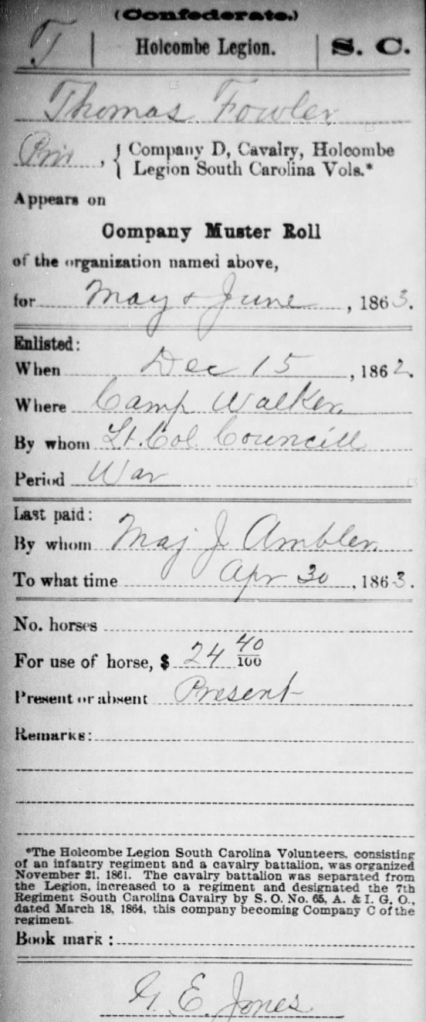 (Confederate.)
T | Holcombe Legion. | S. C.
Thomas Fowler
Pvt, { Company D, Cavalry, Holcombe
Legion South Carolina Vols.*
Appears on
Company Muster Roll
of the organization named above,
for May & June, 1863.
Enlisted:
When Dec 15, 1862.
Where Camp Walker.
By whom Lt. Col. Councill
Period War
Last paid:
By whom Maj J Ambler.
To what time Apr 30, 1863.
No. horses
For use of horse, $ 24 40/100
Present or absent Present
Remarks:
*The Holcombe Legion South Carolina Volunteers, consisting
of an infantry regiment and a cavalry battalion, was organized
November 21, 1861. The cavalry battalion was separated from
the Legion, increased to a regiment and designated the 7th
Regiment South Carolina Cavalry by S. O. No. 65, A. & I. G. O.,
dated March 18, 1864, this company becoming Company C of the
regiment.
Book mark:
G. E. Jones